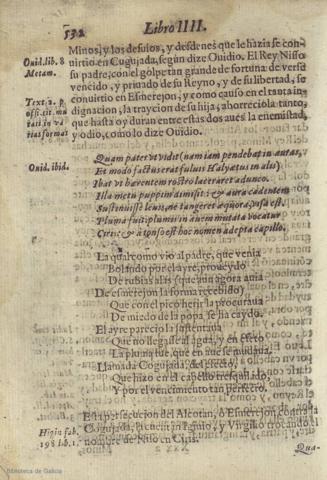 532
Libro IIII.
Minos, y los desuios, y desdenes que le hazia se con-
Ouid. lib. 8
Metam.
uirtio en Cugujada, según dize Ouidio. El Rey Nisso
su padre, con el golpe tan grande de fortuna de verse
vencido, y priuado de su Reyno, y de su libertad, se
conuirtio en Esmerejon, y como causò en el tanta in-
dignacion, la traycion de su hija, aborreciola tanto,
que hasta oy duran entre estas dos aues la enemistad,
y odio, como lo dize Ouidio.
Ouid. ibid.
Quam pater vt vidit (nam iam pendebat in auras,
Et modo factus erat fuluis Halyæetus in alis)
Ibat vt hærentem rostro laceraret adunco.
Illa metu puppim dimisit: & aura cadentem
Sustinuisse leuis, ne tangeret æquora, visa est.
Pluma fuit: plumis in auem mutata vocatur
Ciris: & à tonso est hoc nomen adepta capillo.
La qual como vio al padre, que venia
Bolando por el ayre, proueydo
De rubias alas (que aun agora auia
De esmerejon la forma recebido)
Que con el pico herir la procuraua
De miedo de la popa, se ha caydo.
El ayre pareciò la sustentaua
Que no llegasse al agua, y en efeto
La pluma fue, que en aue se mudaua,
Llamada Cogujada, del efecto,
Que hizo en el cabello tresquilado,
Y por el vencimiento tan perfecto.
Esta persecucion del Alcotan, ò Esmerejon contra la
Higin. fab.
198. lib. 1.
Cogujada, la cuentan Iginio, y Virgilio trocando el
nombre de Niso en Ciris.
Qua-
Biblioteca de Galicia